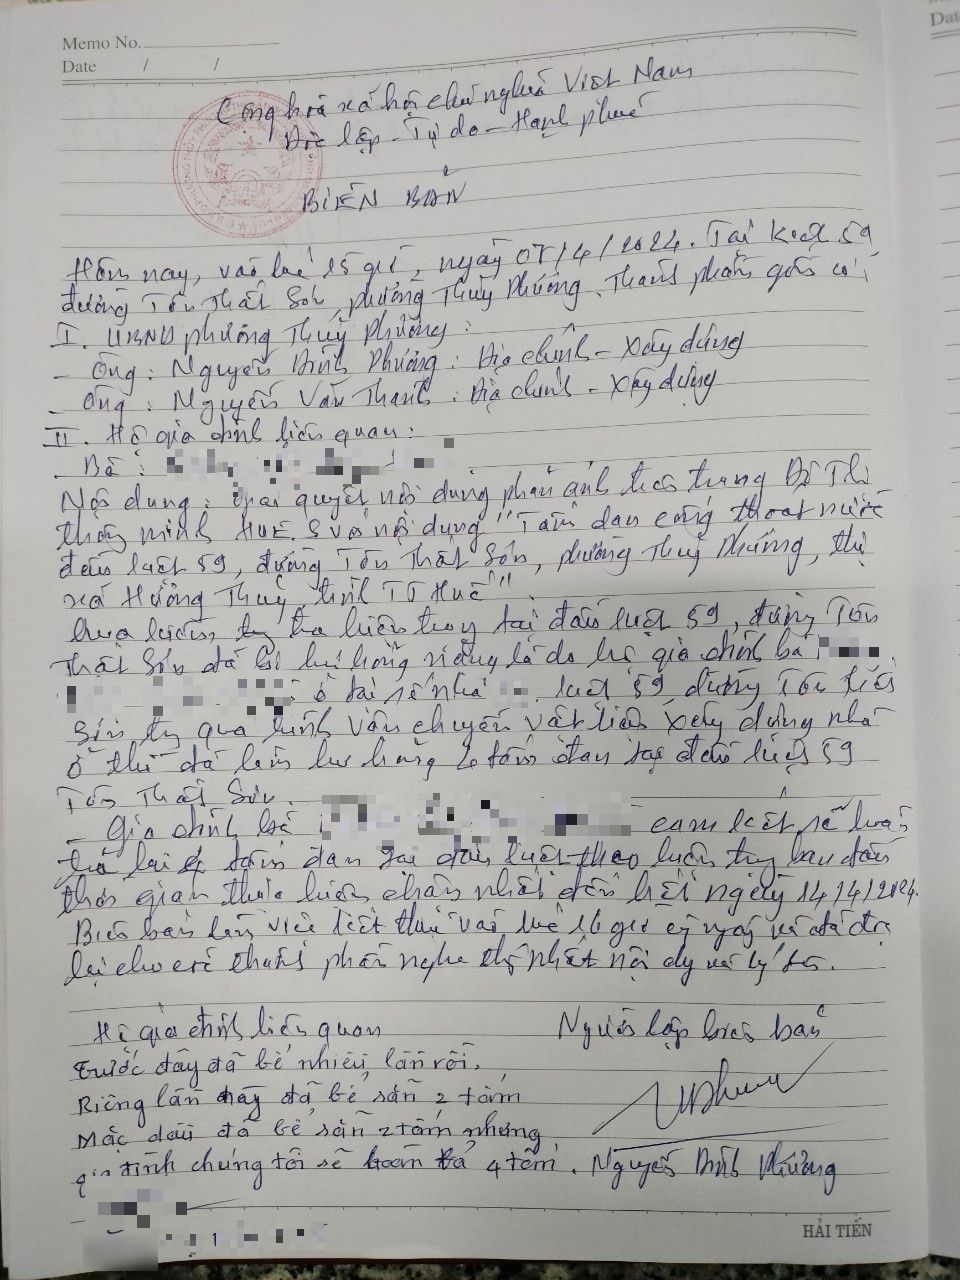 Memo No.
Date / /
Cộng hoà xã hội chủ nghĩa Việt Nam
Độc lập - Tự do - Hạnh phúc
BIÊN BẢN
Hôm nay, vào lúc 15 giờ, ngày 07/4/2024. Tại kiệt 59
đường Tôn Thất Sơn, phường Thuỷ Phương. Thành phần gồm có:
I. UBND phường Thuỷ Phương:
- Ông: Nguyễn Đình Phương: Địa chính - Xây dựng
- Ông: Nguyễn Văn Thanh: Địa chính - Xây dựng
II. Hộ gia đình liên quan:
- Bà:
Nội dung: Giải quyết nội dung phản ánh trên trang Đô Thị
thông minh HUE.S với nội dung "Tấm đan cống thoát nước
đầu kiệt 59, đường Tôn Thất Sơn, phường Thuỷ Phương, thị
xã Hương Thuỷ, tỉnh TT Huế".
Qua kiểm tra hiện trạng tại đầu kiệt 59, đường Tôn
Thất Sơn đã bị hư hỏng nặng là do hộ gia đình bà
ở tại số nhà kiệt 59 đường Tôn Thất
Sơn trong quá trình vận chuyển vật liệu xây dựng nhà
ở thì đã làm hư hỏng 4 tấm đan tại đầu kiệt 59
Tôn Thất Sơn.
- Gia đình bà cam kết sẽ hoàn
trả lại 4 tấm đan tại đầu kiệt theo hiện trạng ban đầu
thời gian thực hiện chậm nhất đến hết ngày 14/4/2024.
Biên bản làm việc kết thúc vào lúc 16 giờ cùng ngày và đã đọc
lại cho các thành phần nghe thống nhất nội dung và ký tên.
Hộ gia đình liên quan Người lập biên bản
Trước đây đã bể nhiều lần rồi.
Riêng lần này đã bể sẵn 2 tấm
Mặc dầu đã bể sẵn 2 tấm nhưng
gia đình chúng tôi sẽ hoàn trả 4 tấm. Nguyễn Đình Phương
HẢI TIẾN